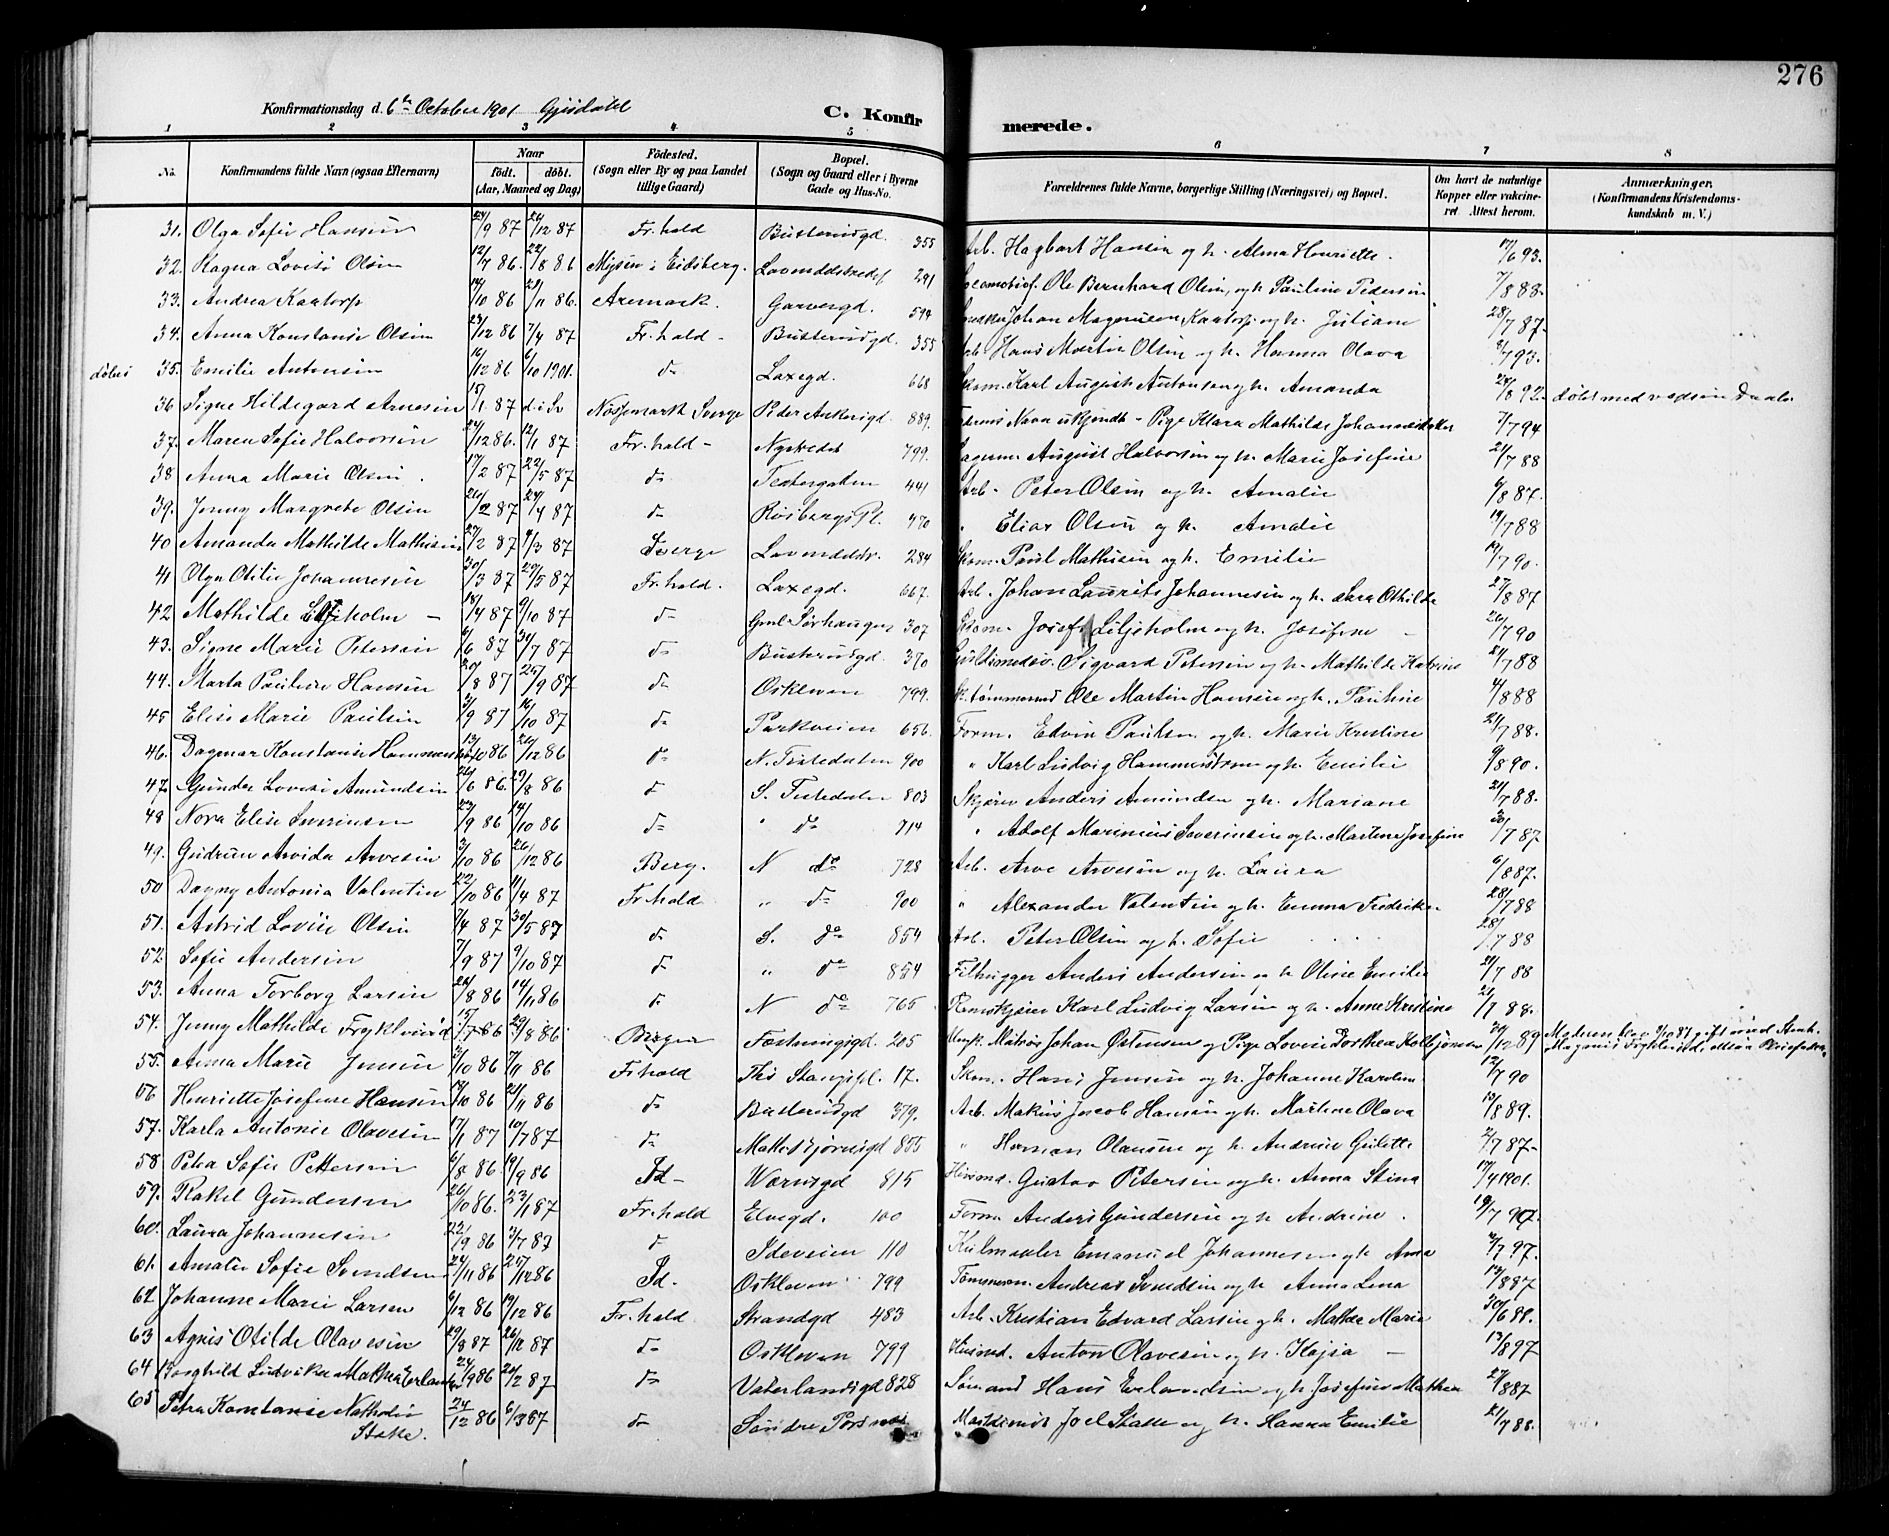 276
Konfirmationsdag d. 6te October 1901
C. Konfirmerede.
1 2 3 4 5 6 7 8
No.
Konfirmandens fulde Navn (ogsaa Efternavn)
Naar
født. døbt.
(Aar, Maaned og Dag)
Fødested.
(Sogn eller By og paa Landet tillige Gaard)
Bopæl.
(Sogn og Gaard eller i Byerne Gade og Hus-No.
Forældrenes fulde Navne, borgerlige Stilling (Næringsvei) og Bopæl.
Om havt de naturlige Kopper eller vakcineret Attest herom.
Anmærkninger.
(Konfirmandens Kristendomskundskab m. V.)
31. Olga Sofie Hansen 24/9 87 26/12 87 Fr.hald Busterudgd. 355 Arb. Hagbart Hansen og h. Alma Henriette. 17/6 93.
32. Ragna Lovise Olsen 12/7 86. 22/8 86 Mysen i Eidsberg. 291 Ole Bernhard Olsen, og h. Pauline Pedersen 7/8 88.
33. Andrea Kaatorp 14/10 86 /11 86. Aremark. Garvergd. 594 Johan Magnusen Kaatorp og h. Juliane 28/7 87.
34. Anna Konstanse Olsen 23/12 86 7/4 87 Fr.hald - Busterudgd. 355 Arb. Hans Martin Olsen og h. Hanna Olava /7 93.
35. Emilie Antonsen 16/12 86 6/10 1901. do Laxegd. 668 Skom. Karl August Antonsen og h. Amanda 24/8 92.
36 Signe Hildegard Arnesen 15/1 87 d. i Sv Nösjemark Sverge Peder Ankersgd. 889. Faderens Navn ukjendt - Pige Klara Mathilde Johannesdatter 7/7 94
37. Maren Sofie Halvorsen 24/12 86. 12/1 87 Fr.hald - Nystedet 799. August Halvorsen og h. Marie Josefine 21/7 88
38 Anna Marie Olsen. 17/2 87 22/5 87 do Tistergaten 441 Arb. Peter Olsen og h. Amalie 6/8 87.
39. Jenny Margrete Olsen 26/2 87 24/4 87 do Rösbergs Pl. 470 Elias Olsen og h. Amalie 19/7 88
40 Amanda Mathilde Mathisen 27/2 87 9/3 87 Sverge 284 Skom. Paul Mathisen og h. Emilie 19/7 90.
41 Olga Otilie Johannesen 30/3 87 29/5 87 Fr.hald. Laxegd. 667. Arb. Johan Laurits Johannesen og h. Sara Othilde 27/8 87
42 Mathilde Liljeholm 18/4 87 9/10 87 do 307 Skom. Josef Liljeholm og h. Josefine 26/7 90
43. Signe Marie Petersen 6/6 87 31/7 87 do Busterudgd. 370 Guldsmedsv. Sigvard Petersen og h. Mathilde Katrine 21/7 88
44. Marta Pauline Hansen 20/8 87 25/9 87 do Oskleven 799. Sk.tømmermd Ole Martin Hansen og h. Pauline 4/8 88
45 Elise Marie Paulsen /9 87 16/10 87 do Parkveien 656. Form. Edvin Paulsen og h. Marie Kristine 21/7 88.
46. Dagmar Konstanse Hammerström 13/10 86 26/12 86 do N. Tistedalen 900 " Karl Ludvig Hammerstrøm og h. Emilie 9/8 90.
47. Gunda Lovise Amundsen 26/6 86. 29/8 86 do S. Tistedalen 803 Skjører Anders Amundsen og h. Mariane 21/7 88.
48 Nora Elise Severinsen 22/9 86 14/10 86 do " do 714 " Adolf Marinius Severinsen og h. Martine Josefine /7 87
49. Gudrun Arvida Arvesen 3/10 86 26/12 86 Berg. N do 728 Arb. Arve Arvesen og h. Laura 6/8 87.
50 Dagny Antonia Valentin 22/10 86 11/4 87 Fr.hald " do 900 " Alexander Valentin og h. Emma Fredrikke 28/7 88
51. Astrid Lovise Olsen 7/4 87 30/5 87 do S. do 854 Arb. Peter Olsen og h. Sofie 28/7 88
52. Sofie Andersen 7/9 87 9/10 87 do " do 854 Filhugger Anders Andersen og h Oline Emilie 21/7 88
53. Anna Torborg Larsen 26/8 86 14/11 86 do N do 765 Remskjærer Karl Ludvig Larsen og h. Anne Kristine 21/7 88.
54. Jenny Mathilde Frykland 15/7 86 29/8 86 Bergen Fæstningsgd. 205 Ungk. Matros Johan Østensen og Pige Lovise Dorthea Kolbjørnsen 29/12 89 Moderen blev 9/10 87 gift med
55. Anna Marie Jensen 2/10 86 7/11 86 Fr.hald Ths Stangspl. 17. Skom. Hans Jensen og h. Johanne Karoline 12/7 90
56 Henriette Josefine Hansen 17/10 86 21/11 86 do Busterudgd 379. Arb. Makus Jacob Hansen og h. Martine Olava 13/8 89.
57. Karla Antonie Olavesen 17/1 87 10/7 87 do Mads Bjørnsgd 855 " Herman Olausen og h. Andrine Gulette 2/7 87-
58 Petra Sofie Pettersen 6/8 86. 19/9 86 Id - Wærnsgd 815 Husmd. Gustav Petersen og h. Anna Stina 17/4 1901.
59. Rakel Gundersen 26/10 86. 23/1 87 Fr.hald Elvegd. 100 Form. Anders Gundersen og h Andrine. 19/7 97.
60. Laura Johannesen 22/9 86 3/7 87 do Ideveien 110 Emanuel Johannesen og h. Anna 2/7 97.
61. Amalie Sofie Svendsen 21/11 86 27/12 86 Id. Oskleven 799 Tømmerm. Andreas Svendsen og h Anna Lena 13/8 87
62. Johanne Marie Larsen 6/12 86 19/12 86 Fr.hald Strandgd 483 Arb. Kristian Edvard Larsen og h. Mathilde Marie 30/6 88.
63 Agnes Otilde Olavesen 29/8 87 26/12 87 do Oskleven 799 Husmd. Anton Olavesen og h. Kajsa 13/8 97
64 Borghild Ludvika Mathea Erlandsen 24/9 86 20/2 87 do Vaterlandsgd 828 Sømand Hans Erlandsen og h. Josefine Mathea 27/8 87
65 Petra Konstanse Nathalie Stakke. 24/12 86 6/3 87 do Søndre Maskinist Joel Stakke og h. Hanna Emilie 21/7 88.